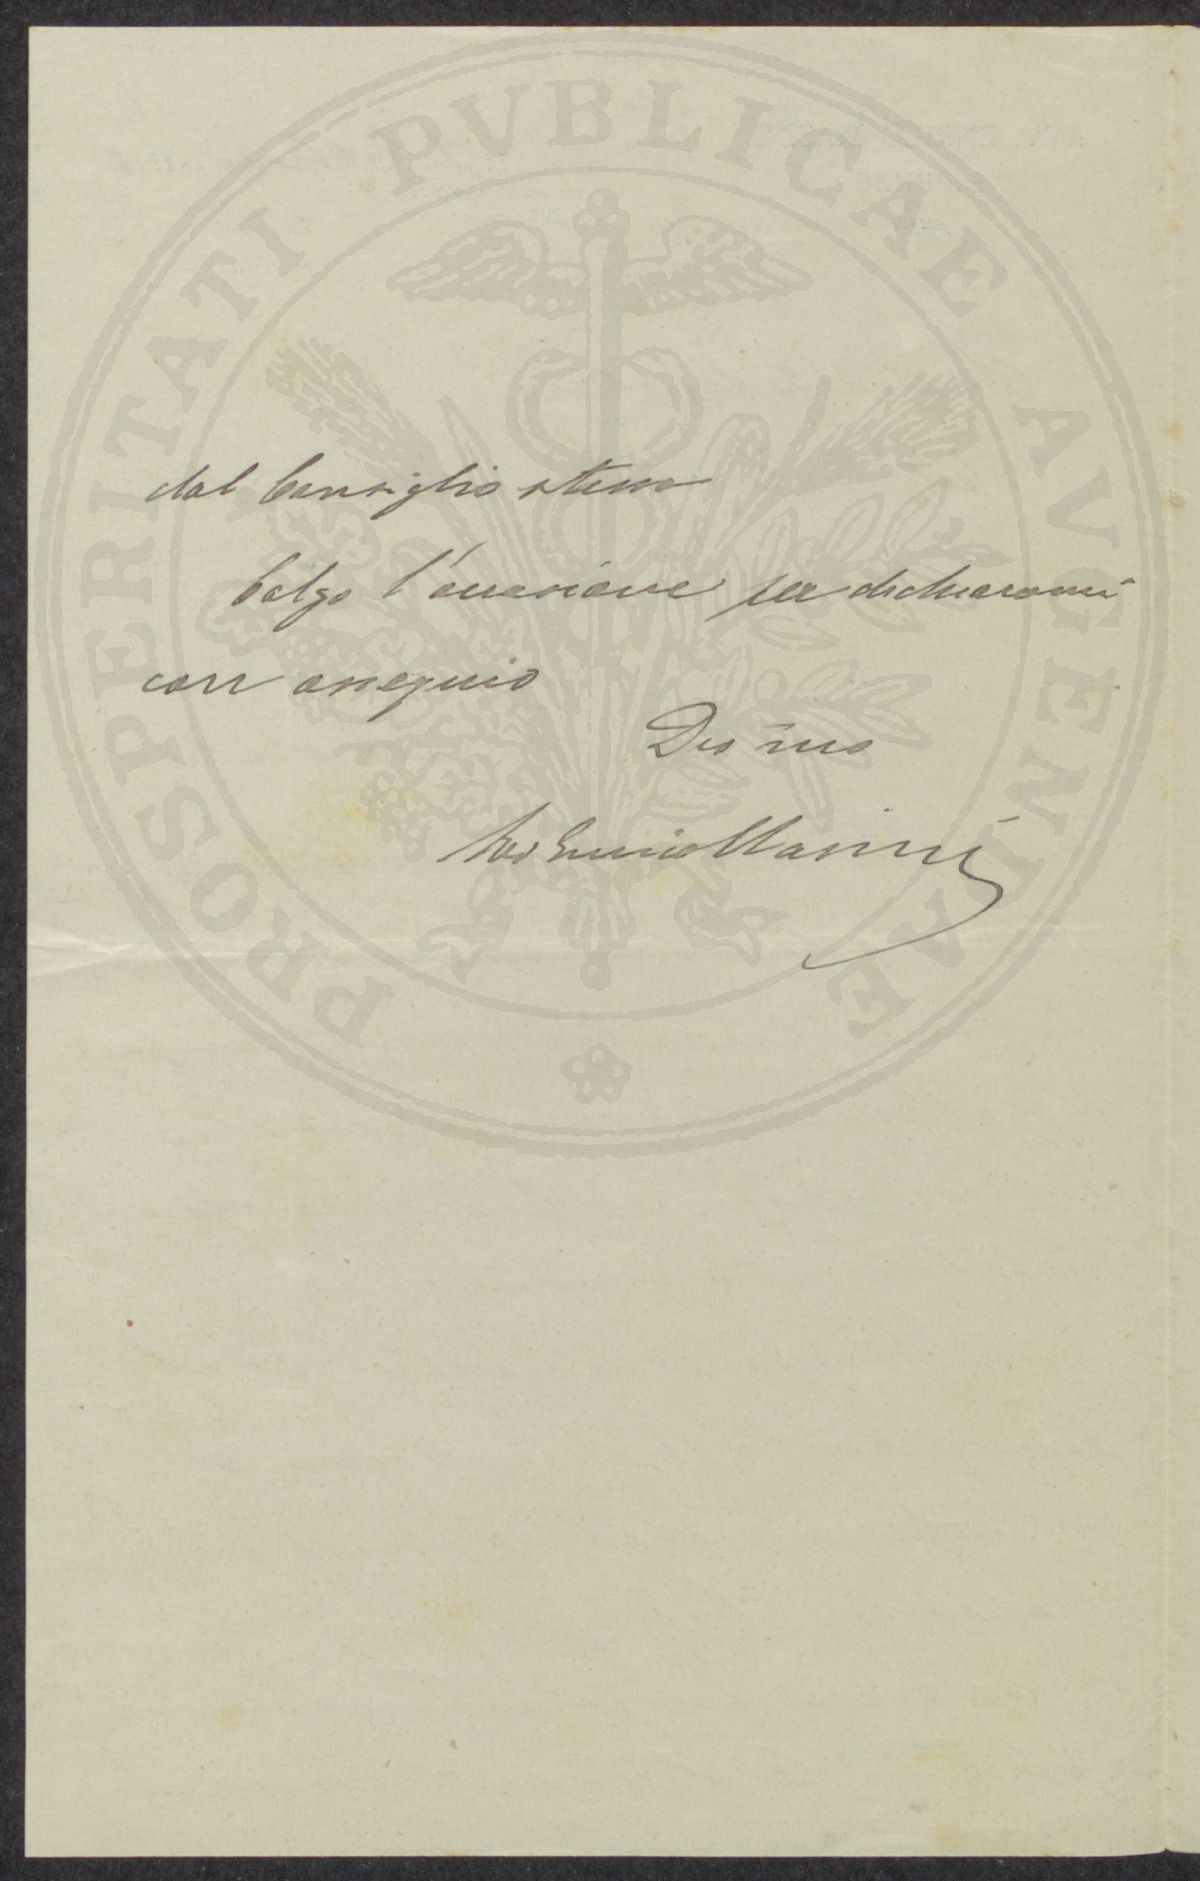 dal Consiglio stesso
Colgo l'occasione per dichiararmi
con ossequio
Dev.mo
Masini
PROSPERITATI PVBLICAE AVGENDAE